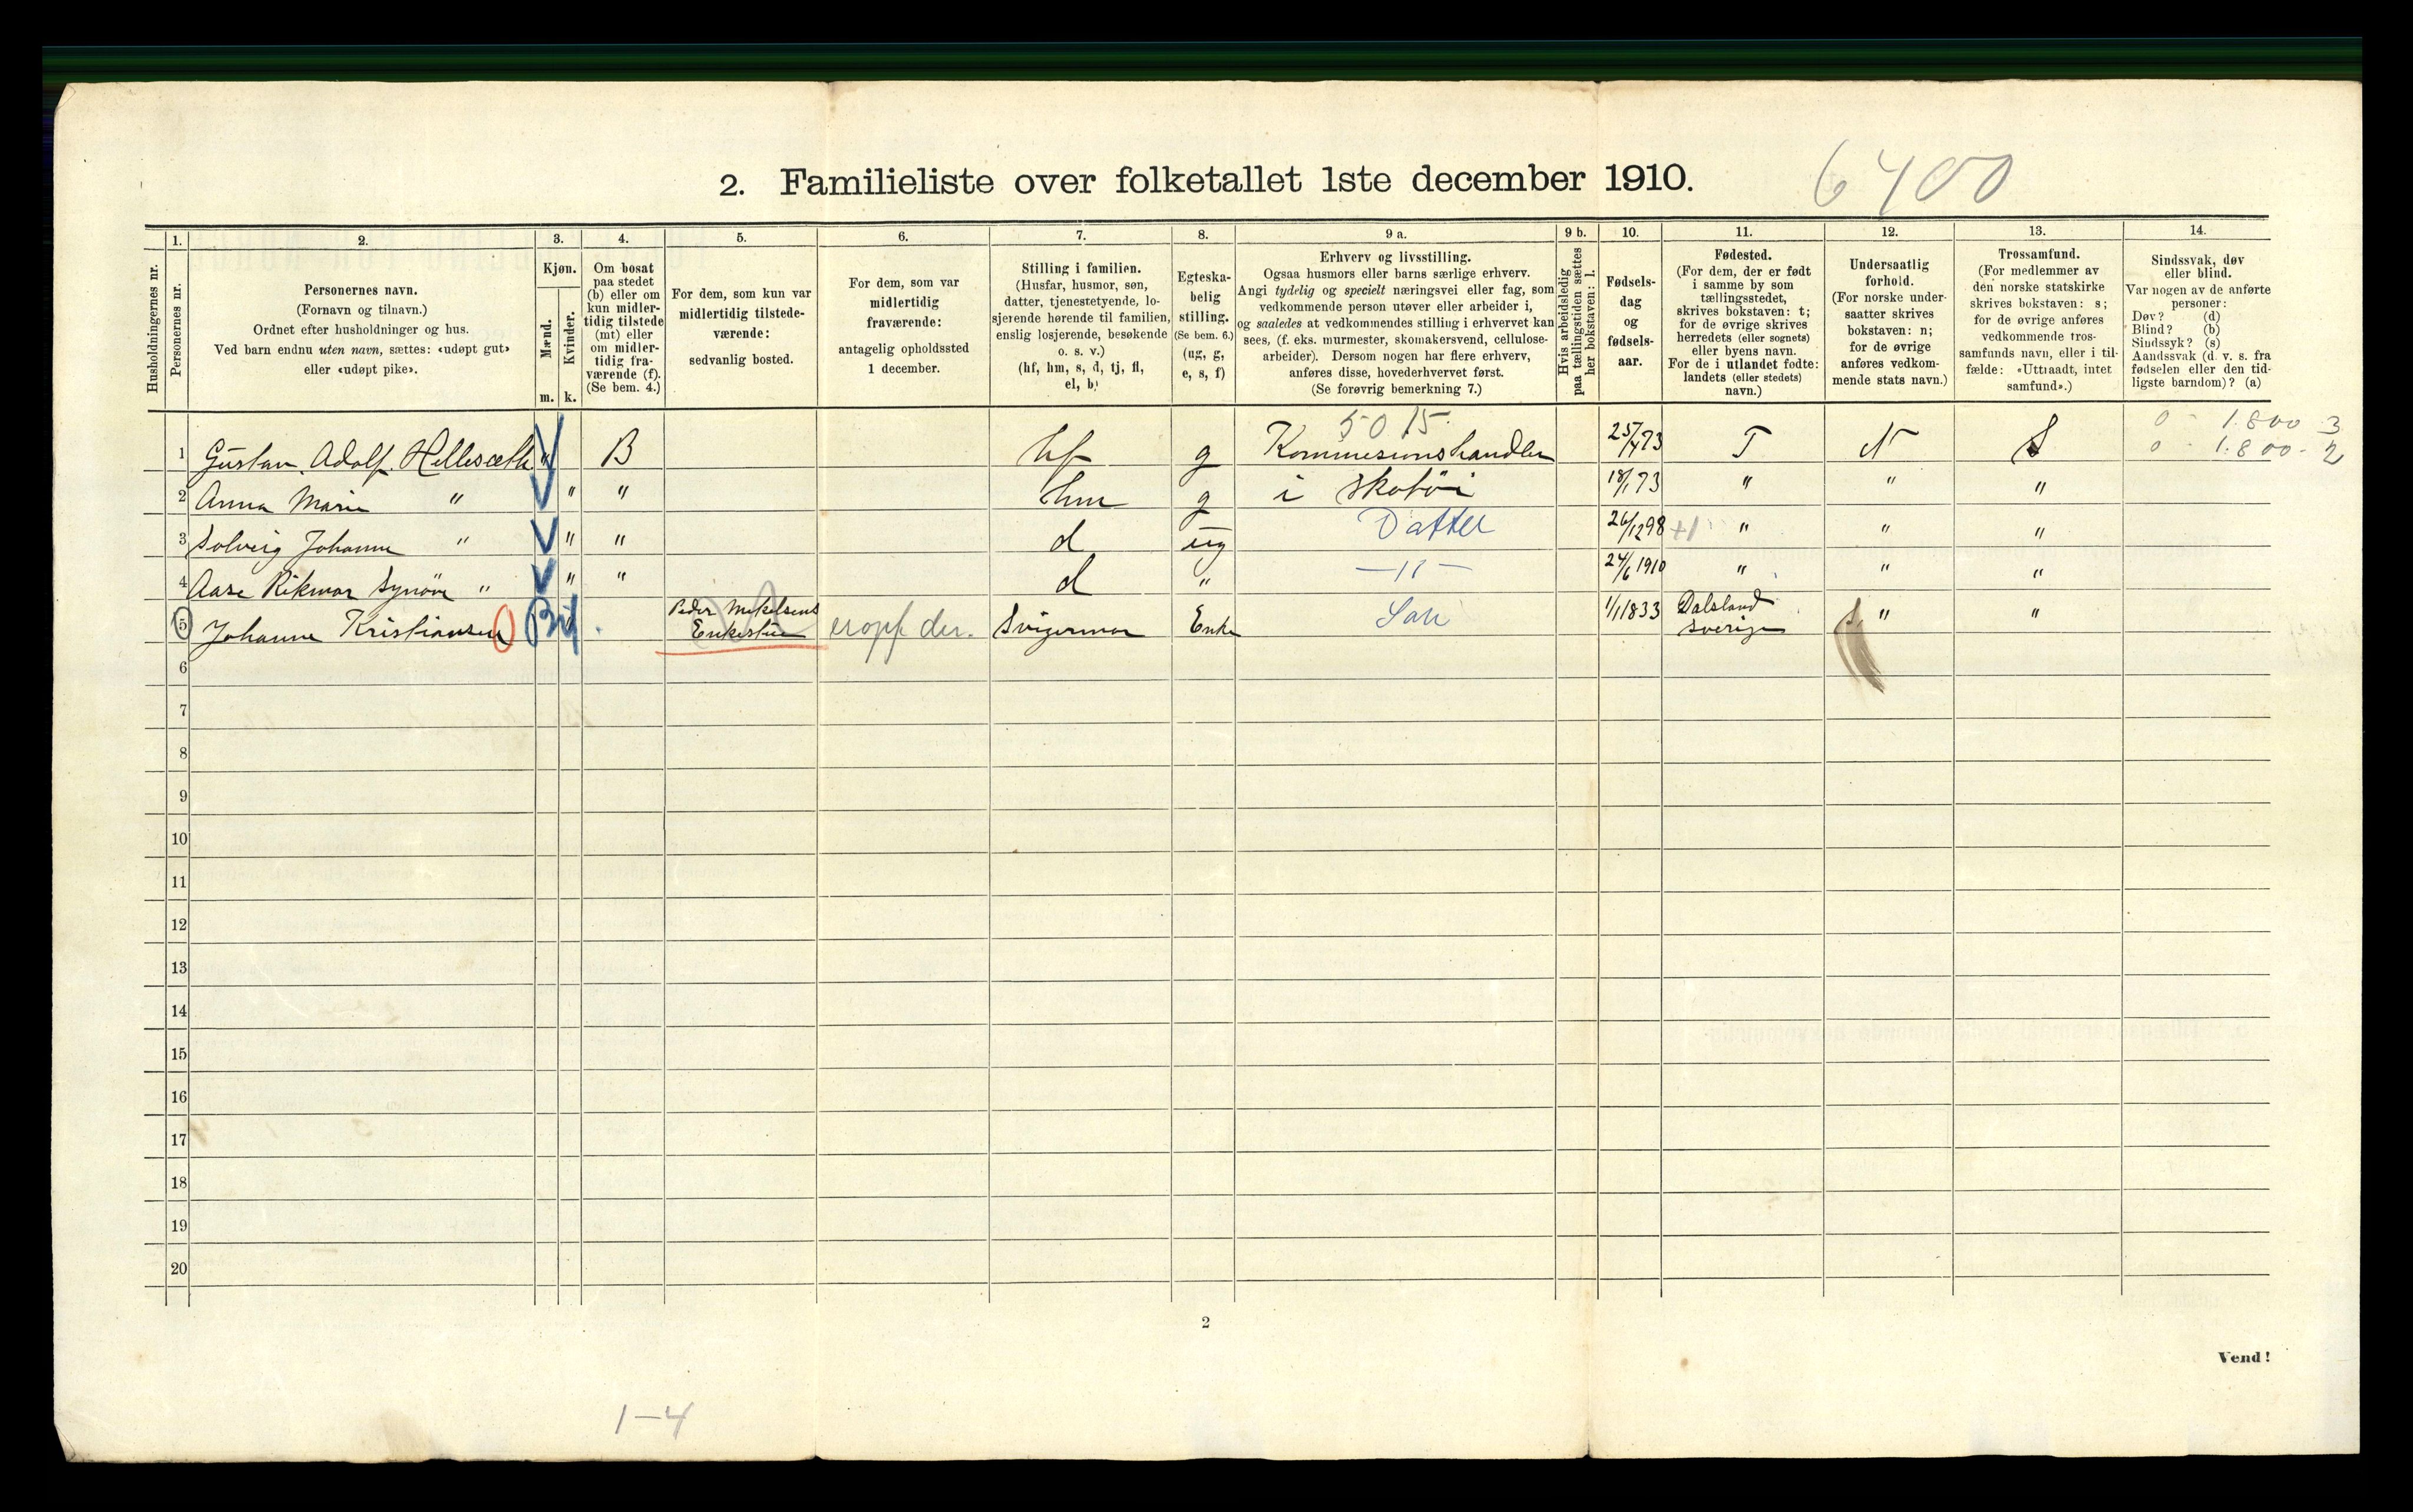 2. Familieliste over folketallet 1ste december 1910. 6400
Husholdningernes nr.
1.
Personernes nr.
2.
Personernes navn.
(Fornavn og tilnavn.)
Ordnet efter husholdninger og hus.
Ved barn endnu uten navn, sættes: «udøpt gut»
eller «udøpt pike».
3.
Kjøn.
Mænd.
Kvinder.
m. k.
4.
Om bosat
paa stedet
(b) eller om
kun midler-
tidig tilstede
(mt) eller
om midler-
tidig fra-
værende (f).
(Se bem. 4.)
5.
For dem, som kun var
midlertidig tilstede-
værende:
sedvanlig bosted.
6.
For dem, som var
midlertidig
fraværende:
antagelig opholdssted
1 december.
7.
Stilling i familien.
(Husfar, husmor, søn,
datter, tjenestetyende, lo-
sjerende hørende til familien,
enslig losjerende, besøkende
o. s. v.)
(hf, hm, s, d, tj, fl,
el, b)
8.
Egteska-
belig
stilling.
(Se bem. 6.)
(ug, g,
e, s, f)
9 a.
Erhverv og livsstilling.
Ogsaa husmors eller barns særlige erhverv.
Angi tydelig og specielt næringsvei eller fag, som
vedkommende person utøver eller arbeider i,
og saaledes at vedkommendes stilling i erhvervet kan
sees, (f. eks. murmester, skomakersvend, cellulose-
arbeider). Dersom nogen har flere erhverv,
anføres disse, hovederhvervet først.
(Se forøvrig bemerkning 7.)
9 b.
Hvis arbeidsledig
paa tællingstiden sættes
her bokstaven: l.
10.
Fødsels-
dag
og
fødsels-
aar.
11.
Fødested.
(For dem, der er født
i samme by som
tællingsstedet,
skrives bokstaven: t;
for de øvrige skrives
herredets (eller sognets)
eller byens navn.
For de i utlandet fødte:
landets (eller stedets)
navn.)
12.
Undersaatlig
forhold.
(For norske under-
saatter skrives
bokstaven: n;
for de øvrige
anføres vedkom-
mende stats navn.)
13.
Trossamfund.
(For medlemmer av
den norske statskirke
skrives bokstaven: s;
for de øvrige anføres
vedkommende tros-
samfunds navn, eller i til-
fælde: «Uttraadt, intet
samfund».)
14.
Sindssvak, døv
eller blind.
Var nogen av de anførte
personer:
Døv? (d)
Blind? (b)
Sindssyk? (s)
Aandssvak (d. v. s. fra
fødselen eller den tid-
ligste barndom)? (a)
5015. 0 - 1.800 3
1 Gustav. Adolf. Hellesæth " B hf g Kommisionshandler 25/4 73 T N S 0 - 1.800 - 2
2 Anna Marie " " " hm g i skotöi 18/1 73 " " "
3 Solveig Johanne " " " d ug Datter 26/12 98 " " "
4 Aase Rikmor Synöve " " " d " -"- 24/6 1910 " " "
5 Johanne Kristiansen Peder Mikelsens Enkestue Svigermor Enke 1/1 1833 Dalsland Sverige S " "
6
7
8
9
10
11
12
13
14
15
16
17
18
19
20
2
Vend!
1-4